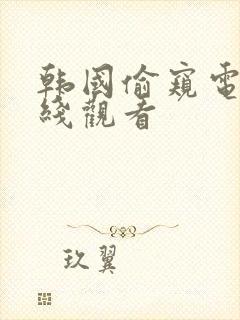 韩國偷窺電
綫觀看
玖翼